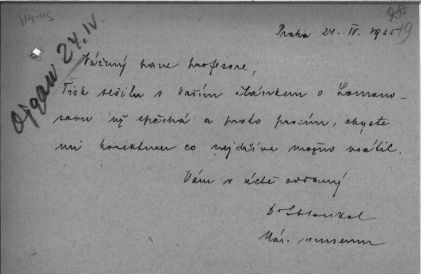 Praha 24. IV. 19
24. IV.
Vážený pane profesore,
Tisk sešitu s Vaším článkem o Lomono-
sovu už spěchá a proto prosím, abyste
mi korekturu co nejdříve možno vrátil.
Vám v úctě oddaný
Nár. museum